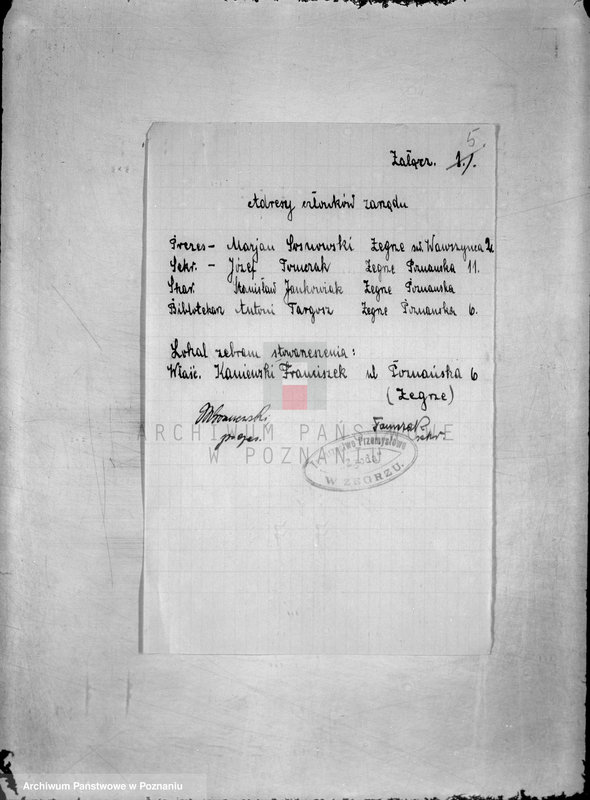 5.
Załącz. 1./.
Adresy członków zarządu
Prezes - Marjan Sosnowski Żegrze św. Wawrzyńca 2
Sekr. - Józef Tomczak Żegrze Poznańska 11.
Skar. Stanisław Jankowiak Żegrze Poznańska
Bibliotekarz Antoni Targosz Żegrze Poznańska 6.
Lokal zebrań stowarzeszenia:
Właśc. Kaniewski Franciszek ul Poznańska 6
(Żegrze)
prezes. Tomczak
sekr.
ARCHIWUM PAŃSTWOWE
W POZNANIU
Przemysłowe
W ŻEGRZU.
Archiwum Państwowe w Poznaniu